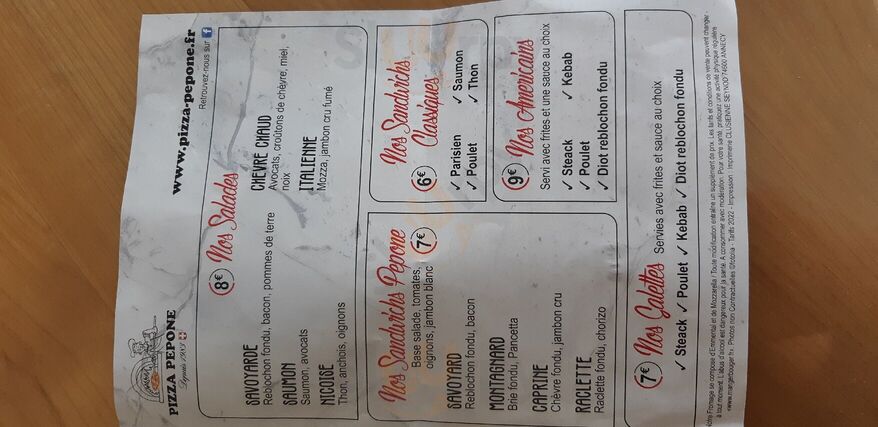 PIZZA PEPONE
Depuis 1985
www.pizza-pepone.fr
Retrouvez-nous sur f
8€ Nos Salades
SAVOYARDE
Reblochon fondu, bacon, pommes de terre
SAUMON
Saumon, avocats
NICOISE
Thon, anchois, oignons
CHEVRE CHAUD
Avocats, croutons de chèvre, miel,
noix
ITALIENNE
Mozza, jambon cru fumé
Nos Sandwichs Pepone
Base salade, tomates,
oignons, jambon blanc
7€
SAVOYARD
Reblochon fondu, bacon
MONTAGNARD
Brie fondu, Pancetta
CAPRINE
Chèvre fondu, jambon cru
RACLETTE
Raclette fondu, chorizo
Nos Sandwichs
Classiques
6€
✓ Parisien ✓ Saumon
✓ Poulet ✓ Thon
9€ Nos Americains
Servi avec frites et une sauce au choix
✓ Steack ✓ Kebab
✓ Poulet
✓ Diot reblochon fondu
7€ Nos Galettes Servies avec frites et sauce au choix
✓ Steack ✓ Poulet ✓ Kebab ✓ Diot reblochon fondu
Fromage se compose d'Emmental et de Mozzarella ! Toute modification entraîne un supplément de prix. Les tarifs et conditions de vente peuvent changer
à tout moment. L'abus d'alcool est dangereux pour la santé. A consommer avec modération. Pour votre santé, pratiquez une activité physique régulière
www.mangerbouger.fr. Photos non Contractuelles ©fotolia - Tarifs 2022 - Impression : Imprimerie CLUSIENNE SEYNOD 74600 ANNECY